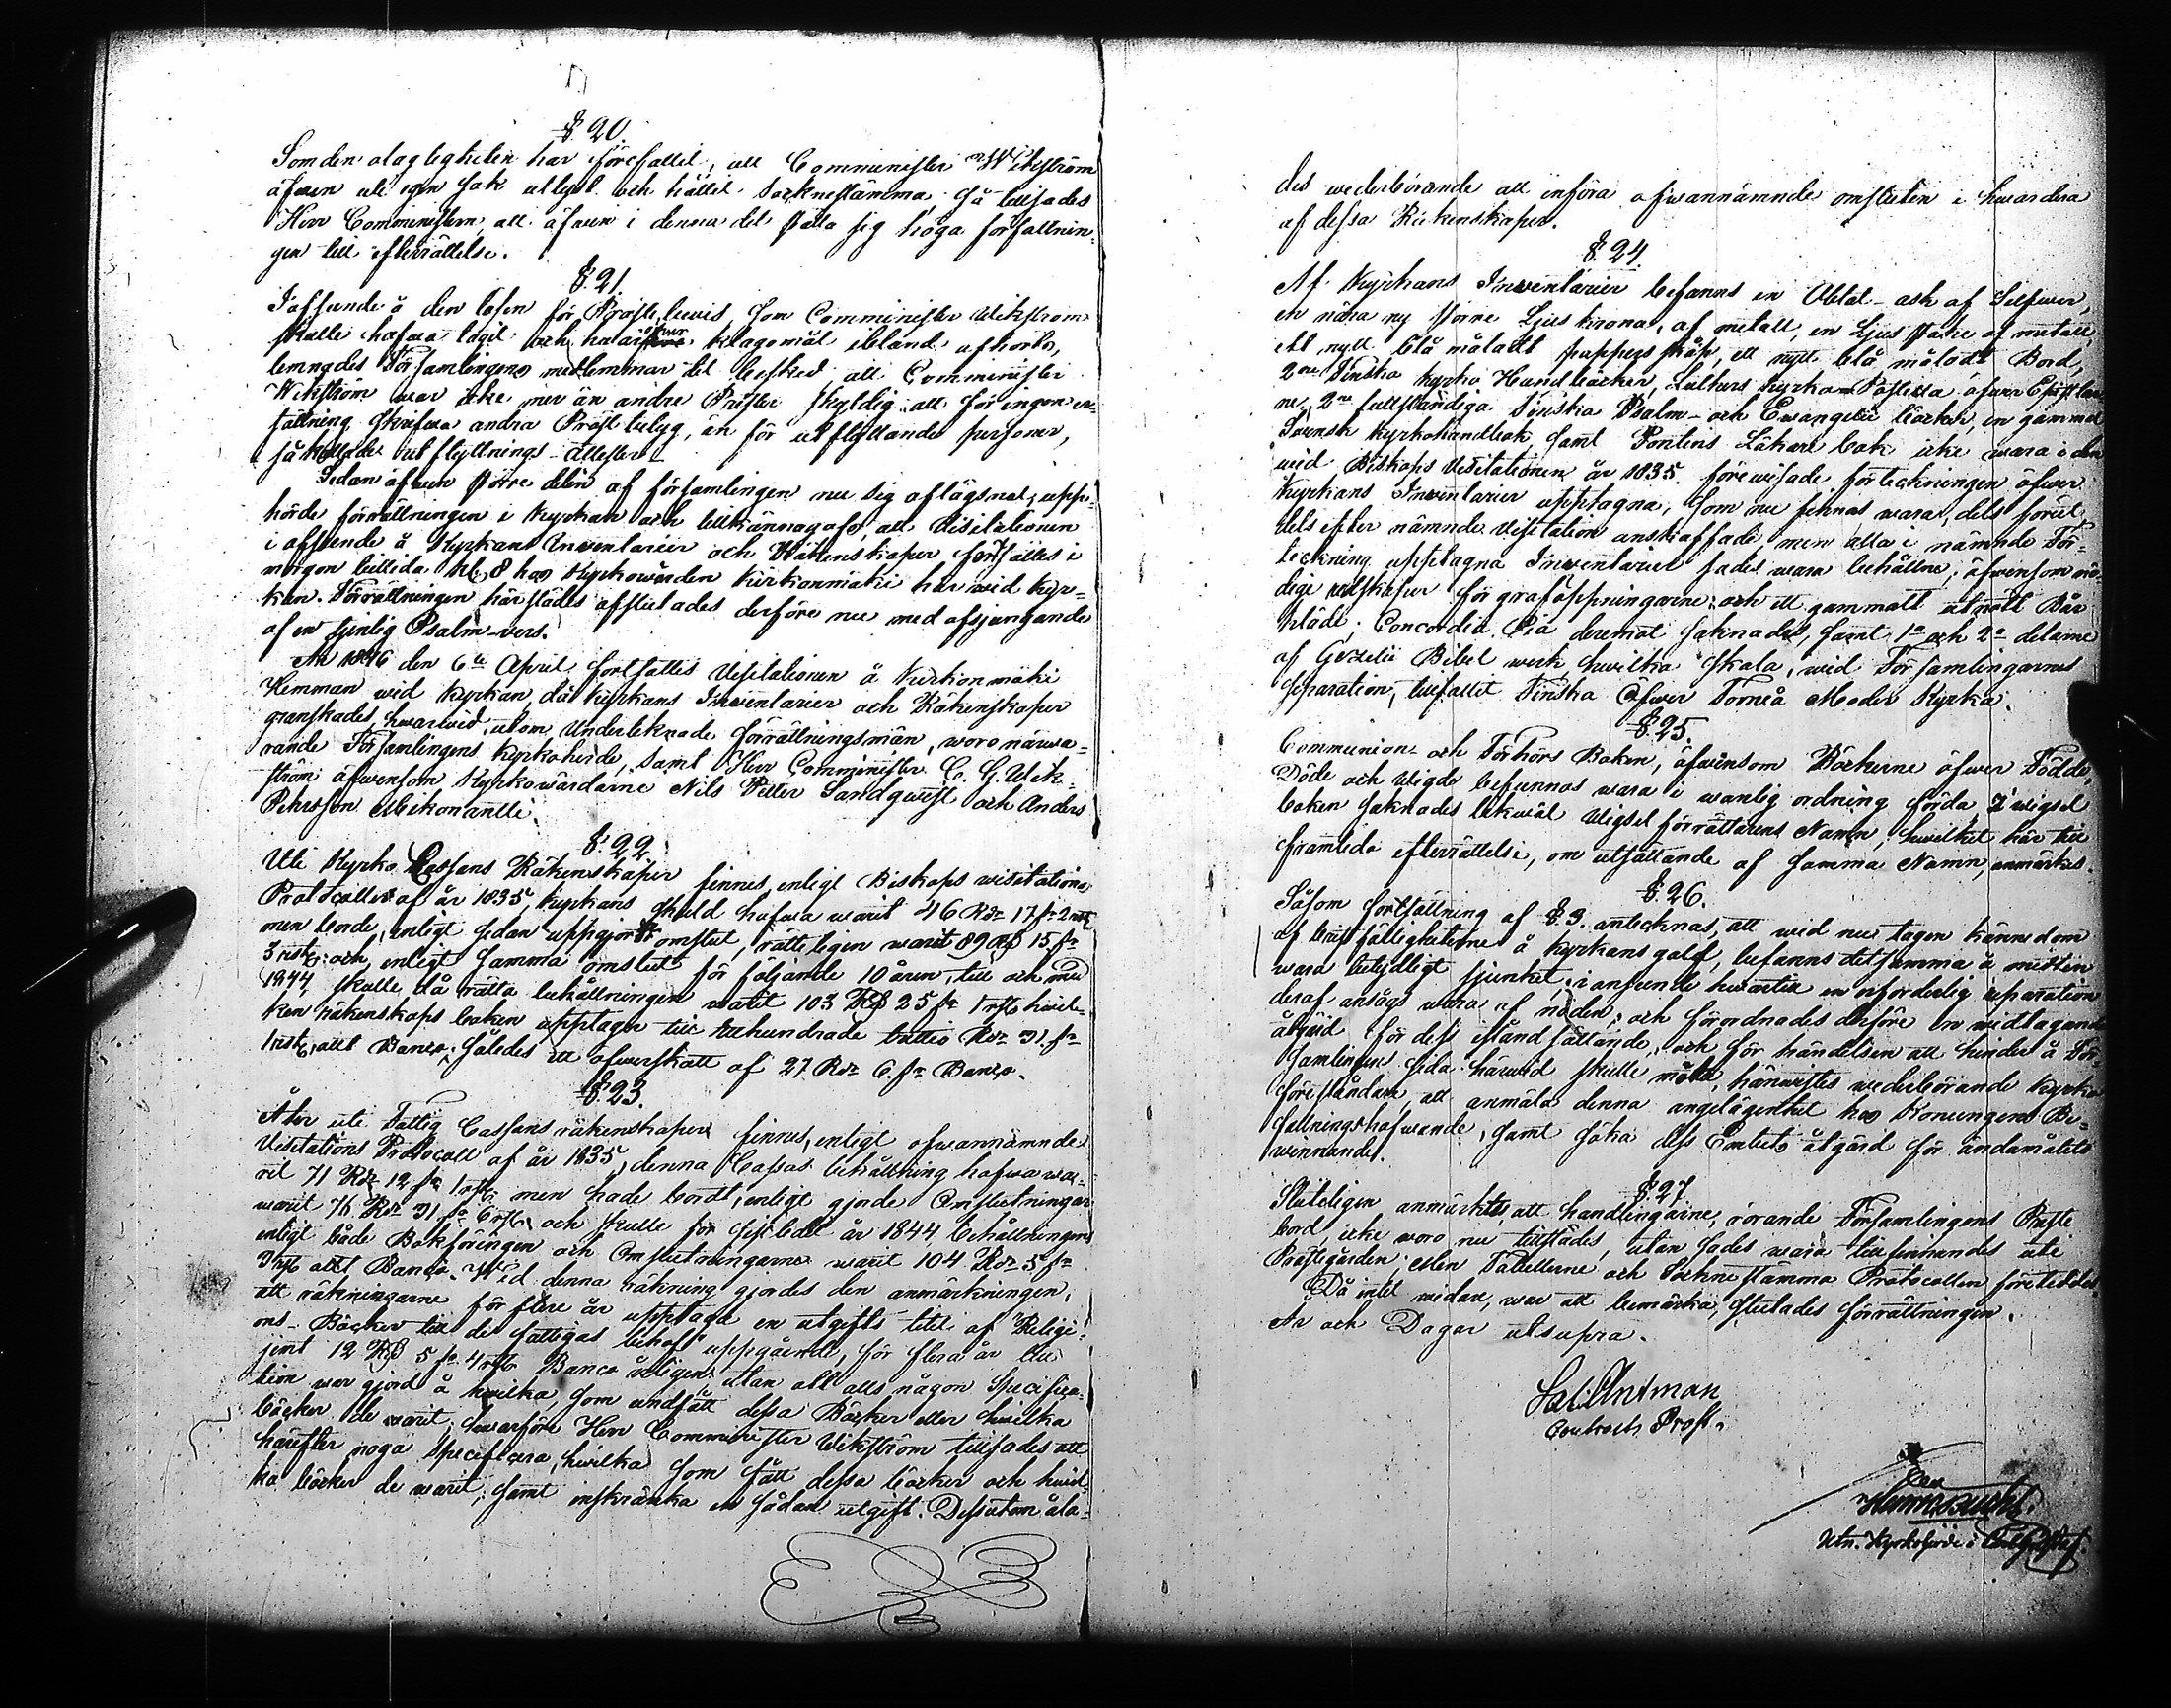 §. 20.
Som den olagligheten har förefallit, att Comminister Wikström
äfwen uti egen sak utlyst och hållit Socknestämma, så tillsades
Herr Comministern, att äfwen i denna del ställa sig höga författnin-
gen till efterrättelse.
§. 21.
I afseende å den lösen för Prästbewis, som Comminister Wikström
skulle hafwa tagit och hwaröfwer klagomål ibland afhörts,
lemnades Församlingens medlemmar det besked, att Comminister
Wikström war icke mer än andre Prester skyldig, att för ingen er-
sättning skrifwa andra Prästbetyg, än för utflyttande personer,
så kallade utflyttnings-attester.
Sedan äfwen större delen af församlingen nu sig aflägsnat, upp-
hörde förrättningen i Kyrkan och tillkännagafs, att Visitationen
i afseende å Kyrkans Inventarier och Räkenskaper fortsättes i
morgon bittida kl. 8 hos Kyrkowärden Kirkonmäki här wid Kyr-
kan. Förrättningen härstädes afslutades derföre nu med afsjungande
af en tjenlig Psalm-vers.
År 1846 den 6te April fortsattes Visitationen å Kirkonmäki
Hemman wid Kyrkan, då Kyrkans Inventarier och Räkenskaper
granskades, hwarwid, utom Undertecknade förrättningsmän, woro närwa-
rande Församlingens Kyrkoherde, samt Herr Comminister C. G. Wik-
ström äfwensom Kyrkowärdarne Nils Petter Sandqwist och Anders
Pehrsson Mikonantti.
§. 22.
Uti Kyrko Cassans Räkenskaper finnes, enligt Biskops visitations
Protocollet af år 1835, Kyrkans skuld hafwa warit 46 Rdr 17 sk 2 rst
men borde, enligt sedan uppgjordt omslut, rätteligen warit 89 Rd 15 sk
3 rst; och enligt samma omslut för följande 10 åren, till och med
1844, skulle då rätta behållningen warit 103 Rd 25 sk 1 rst hwil-
ken räkenskaps boken upptager till etthundrade trettio Rdr 31 sk
1 rst, allt Banco; således ett öfwerskott af 27 Rdr 6 sk Banco.
§. 23.
Åter uti Fattig Cassans räkenskaper finnes, enligt ofwannämnde
Visitations Protocoll af år 1835, denna Cassas behållning hafwa wa-
rit 71 Rdr 12 sk 1 rst men hade bordt, enligt gjorde Omslutningar
warit 76 Rdr 31 sk 6 rst och skulle för sistledit år 1844 behållningen
enligt både Bokföringen och Omslutningarne warit 104 Rdr 5 sk
3 rst allt Banco. Wid denna räkning gjordes den anmärkningen,
att räkningarne för flere år upptaga en utgifts titel af Religi-
ons-Böcker till de fattigas behof uppgående, för flera år till
jemt 12 Rd 5 sk 4 rst Banco årligen utan att alls någon Specifica-
tion war gjord å hwilka, som undfått dessa Böcker eller hwilka
böcker de warit; hwarföre Herr Comminister Wikström tillsades att
härefter noga specificera, hwilka som fått dessa böcker och hwil-
ka böcker de warit, samt inskränka en sådan utgift. Dessutom åla-
des wederbörande att införa ofwannämnde omsluten i hwardera
af dessa Räkenskaper.
§. 24.
Af Kyrkans Inventarier befanns en Oblat-ask af Silfwer,
en nära ny större Ljuskrona, af metall, en Ljusstake af metall,
ett nytt blå måladt pappersskåp, ett nytt blå måladt Bord,
2ne Finska Kyrko Handböcker, Luthers Kyrko-Postilla öfwer Epistlar-
ne, 2ne fullständiga Finska Psalm- och Ewangelii böcker, en gammal
Swensk Kyrkohandbok, samt Pontins Läkare bok icke wara i den
wid Biskops Visitationen år 1835 förewisade förteckningen öfwer
Kyrkans Inventarier upptagna, som nu finnas wara, dels förut
dels efter nämnde Visitation anskaffade men alla i nämnde För-
teckning upptagna Inventarier sades wara behållne; äfwensom nö-
dige redskaper för graföppningarne, och ett gammalt utnött Bår-
kläde; Concordia Pia deremot saknades, samt 1a och 2a delarne
af Gezelii Bibel werk hwilka skola, wid Församlingarnes
separation, tillfallit Finska Öfwer Torneå Moder Kyrka.
§. 25.
Communion- och Förhörs Boken, äfwensom Böckerne öfwer Födde,
Döde och Wigde befunnos wara i wanlig ordning förda. I wigsel
boken saknades likwäl Wigsel förrättarens Namn, hwilket här till
framtida efterrättelse, om utsättande af samma Namn, anmärkes.
§. 26.
Såsom fortsättning af §. 3. antecknas, att wid nu tagen kännedom
af bristfälligheterne å Kyrkans golf, befanns detsamma å midten
wara betydligt sjunket, i anseende hwartill en oförderlig reparation
deraf ansågs wara af nöden, och förordnades derföre en widtagande
åtgärd för dess iståndsättande, och för händelsen att hinder å För-
samlingens sida härwid skulle möta, hänwistes wederbörande Kyrko
föreståndare, att anmäla denna angelägenhet hos Konungens Be-
fallningshafwande, samt söka dess Embets åtgärd för ändamålets
winnande.
§. 27
Sluteligen anmärktes, att handlingarne, rörande Församlingens Präste
bord, icke woro nu tillstädes, utan sades wara tillfinnandes uti
Prästgården; men Tabellerne och Sockne stämma Protocollen företeddes.
Då intet widare, war att bemärka, slutades förrättningen.
År och Dagar utsupra.
Sal. Antman
Contracts Prost.